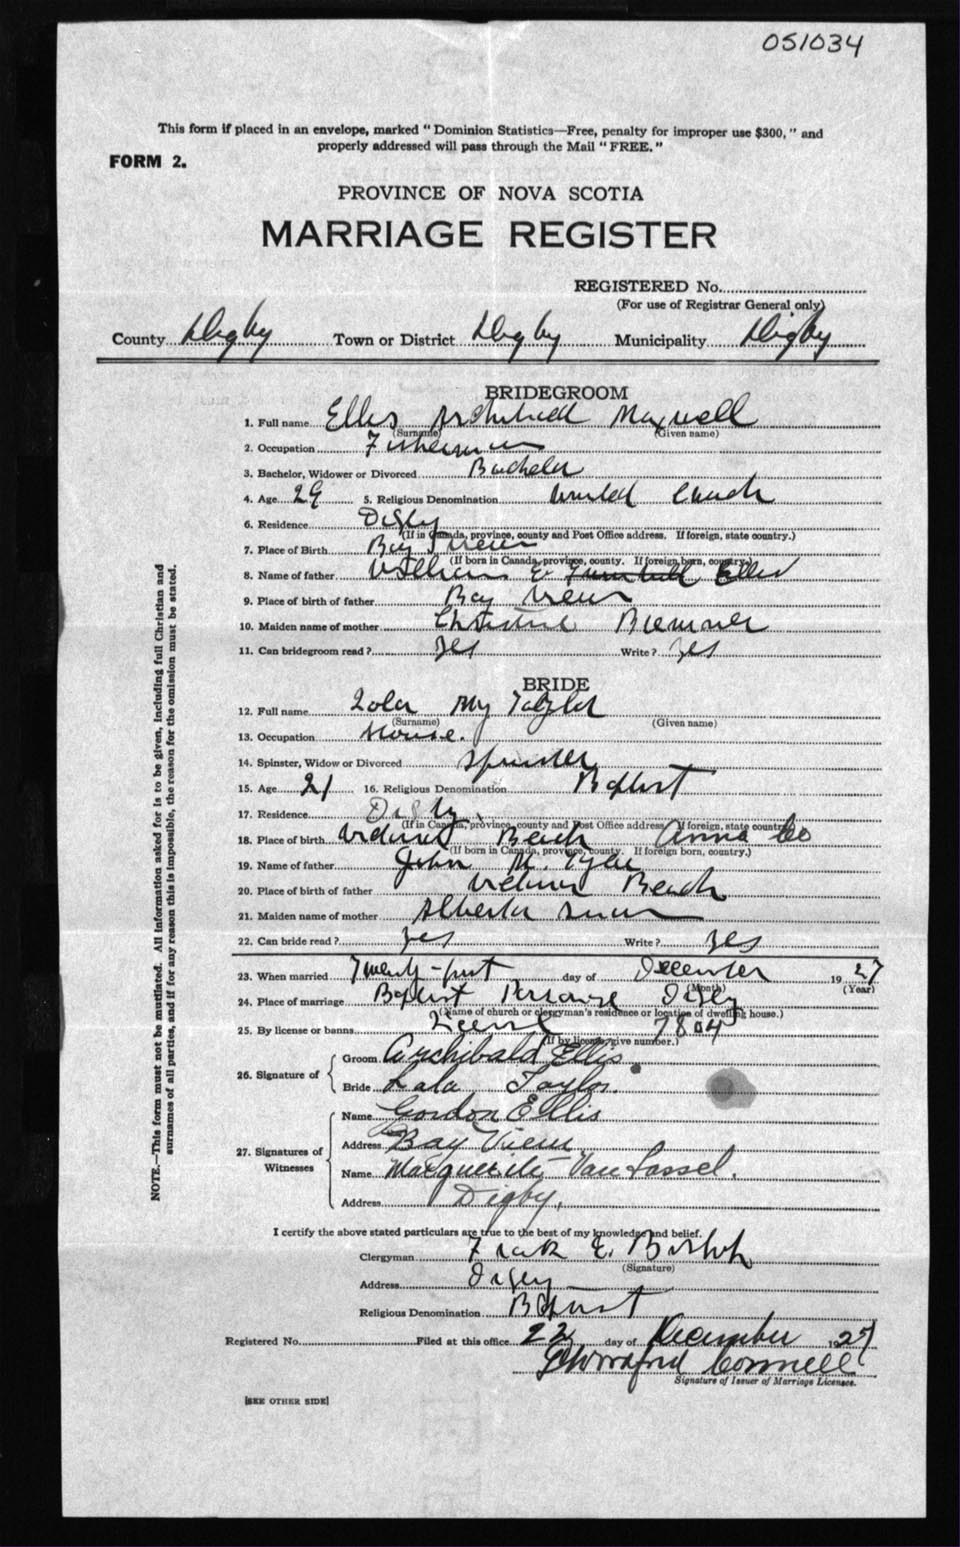 051034
This form if placed in an envelope, marked "Dominion Statistics—Free, penalty for improper use $300," and
properly addressed will pass through the Mail "FREE."
FORM 2.
PROVINCE OF NOVA SCOTIA
MARRIAGE REGISTER
REGISTERED No.
(For use of Registrar General only)
County Digby Town or District Digby Municipality Digby
BRIDEGROOM
1. Full name Ellis Archibald Maxwell
(Surname) (Given name)
2. Occupation Fisherman
3. Bachelor, Widower or Divorced Bachelor
4. Age 29 5. Religious Denomination United Church
6. Residence Digby
(If in Canada, province, county and Post Office address. If foreign, state country.)
7. Place of Birth Bay View
(If born in Canada, province, county. If foreign born, country.)
8. Name of father William E. Ellis
9. Place of birth of father Bay View
10. Maiden name of mother Christine Bremner
11. Can bridegroom read? Yes Write? Yes
BRIDE
12. Full name Lola My Taylor
(Surname) (Given name)
13. Occupation House.
14. Spinster, Widow or Divorced Spinster
15. Age 21 16. Religious Denomination Baptist
17. Residence Digby
(If in Canada, province, county and Post Office address. If foreign, state country.)
18. Place of birth Beach Anna Co
(If born in Canada, province, county. If foreign born, country.)
19. Name of father John M.
20. Place of birth of father Beach
21. Maiden name of mother Alberta
22. Can bride read? Yes Write? Yes
23. When married Twenty-first day of December 1927
(Month) (Year)
24. Place of marriage Baptist Parsonage Digby
(Name of church or clergyman's residence or location of dwelling house.)
25. By license or banns License 7804
(If by license, give number.)
26. Signature of
Groom Archibald Ellis.
Bride Lala Taylor.
27. Signatures of
Witnesses
Name Gordon Ellis
Address Bay View
Name Marguerite Van Tassel.
Address Digby.
I certify the above stated particulars are true to the best of my knowledge and belief.
Clergyman Frank E. Bishop
(Signature)
Address Digby
Religious Denomination Baptist
Registered No. Filed at this office 22 day of December 27
Connell
Signature of Issuer of Marriage Licenses.
[SEE OTHER SIDE]
NOTE.—This form must not be mutilated. All information asked for is to be given, including full Christian and
surnames of all parties, and if for any reason this is impossible, the reason for the omission must be stated.